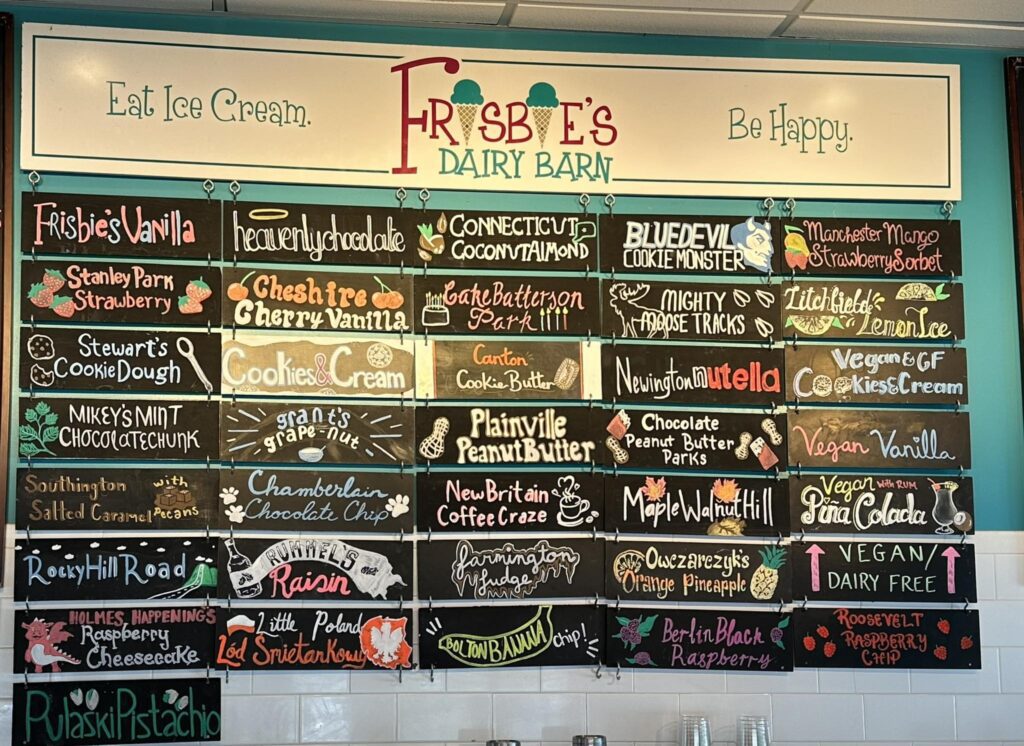 Eat Ice Cream.
FRISBIE'S
DAIRY BARN
Be Happy.
Frisbie's Vanilla
heavenly chocolate
CONNECTICUT
COCONUT ALMOND
BLUE DEVIL
COOKIE MONSTER
Manchester Mango
Strawberry Sorbet
Stanley Park
Strawberry
Cheshire
Cherry Vanilla
Cake Batterson
Park
MIGHTY
MOOSE TRACKS
Litchfield's
Lemon Ice
Stewart's
Cookie Dough
Cookies & Cream
Canton
Cookie Butter
Newington nutella
Vegan & GF
Cookies & Cream
MIKEY'S MINT
CHOCOLATE CHUNK
grant's
grape-nut
Plainville
Peanut Butter
Chocolate
Peanut Butter
Parks
Vegan Vanilla
Southington
Salted Caramel
with
Pecans
Chamberlain
Chocolate Chip
New Britain
Coffee Craze
Maple Walnut Hill
Vegan with RUM
Piña Colada
Rocky Hill Road
RUMMEL'S
Raisin
farmington
fudge
Owczarczyk's
Orange Pineapple
VEGAN/
DAIRY FREE
HOLMES, HAPPENING'S
Raspberry
Cheesecake
Little Poland
Lód Śnietankowy
BOLTON BANANA chip!
Berlin Black
Raspberry
ROOSEVELT
RASPBERRY
CHIP
Pulaski Pistachio